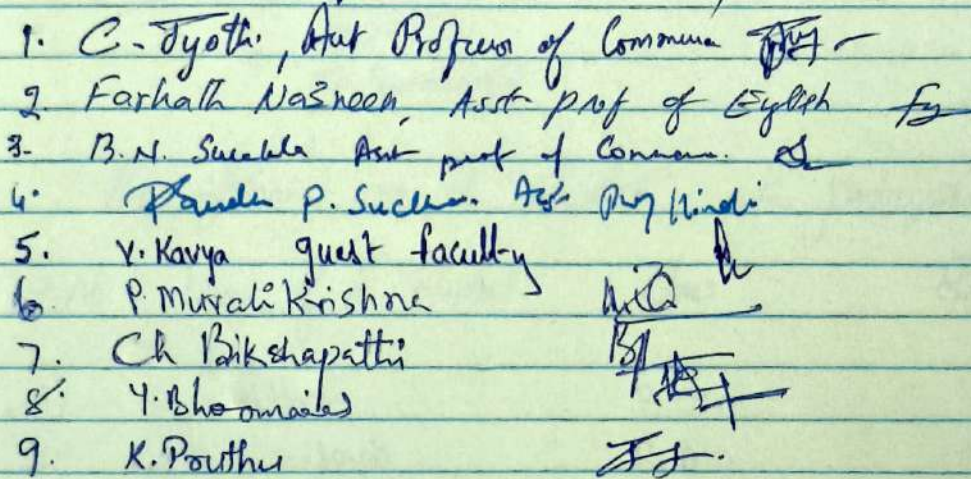 1. C. Jyothi, Asst Professor of Commerce
2. Farhath Nasneen, Asst prof of English
3. B.N. Asst prof of Commerce.
4. P. Sudha. Asst Prof Hindi
5. V. Kavya guest faculty
6. P. Murali Krishna
7. Ch Bikshapathi
8. Y. Bhoomaiah
9. K. Pruthu